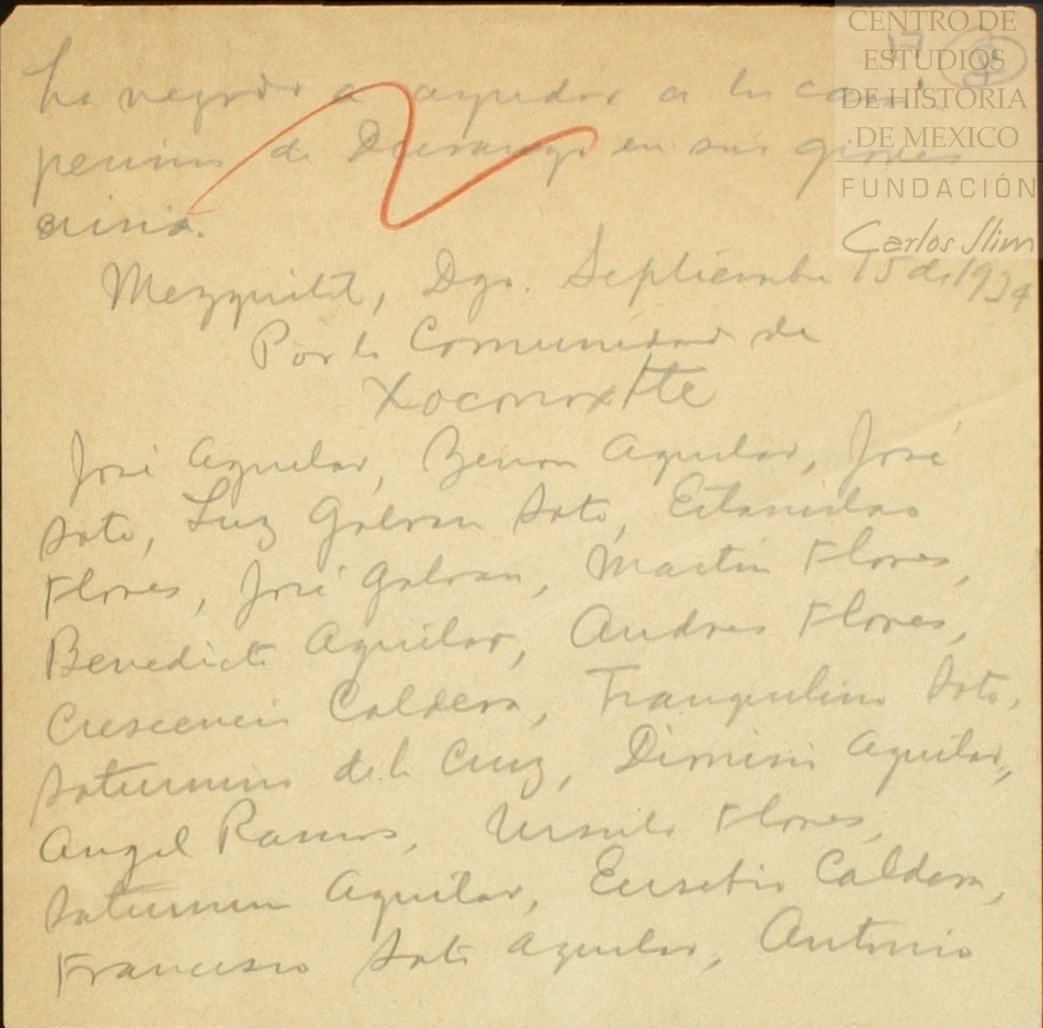 CENTRO DE
ESTUDIOS
DE HISTORIA
DE MEXICO
FUNDACIÓN
Carlos Slim
17
ha negado a ayudar a los cam-
pesinos de Durango en sus graves
crisis.
Mezquital, Dgo. Septiembre 15 de 1934
Por la Comunidad de
Xoconoxtle
José Aguilar, Benon Aguilar, José
Soto, Luz Galvan Soto, Estanislao
Flores, José Galvan, Martin Flores,
Benedicto Aguilar, Andres Flores,
Crescencio Caldera, Tranquilino Soto,
Saturnino de la Cruz, Dionisio Aguilar,
Angel Ramos, Ursulo Flores,
Saturnino Aguilar, Eusebio Caldera,
Francisco Soto Aguilar, Antonio